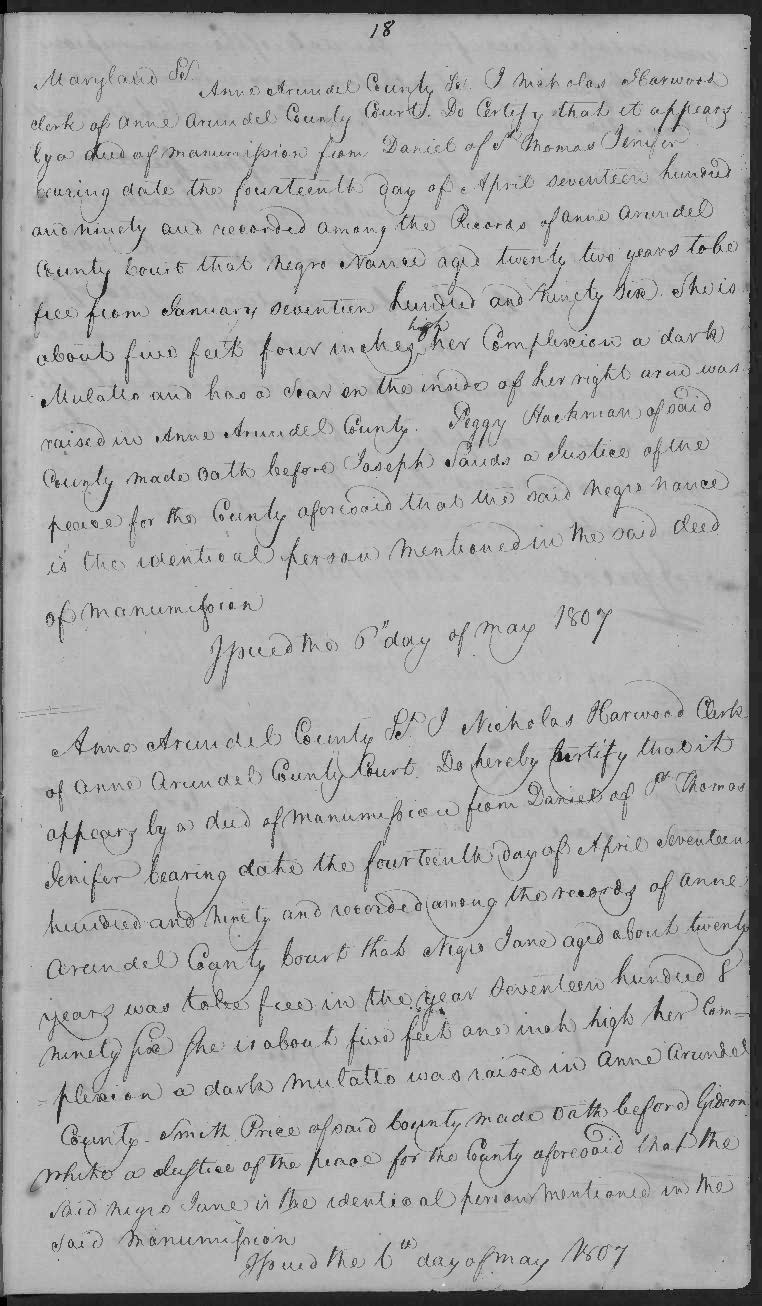 18
Maryland Sst.
Anne Arundel County Sst. I Nicholas Harwood
Clerk of Anne Arundel County Court. Do Certify that it appears
by a deed of manumission from Daniel of St Thomas Jenifer
bearing date the fourteenth day of April seventeen hundred
and ninety and recorded among the Records of Anne Arundel
County Court that Negro Nance aged twenty two years to be
free from January seventeen hundred and Ninety Six. She is
about five feet four inches high her Complexion a dark
Mulatto and has a Scar on the inside of her right arm was
raised in Anne Arundel County. Peggy Hackman of said
County made Oath before Joseph Sands a Justice of the
peace for the County aforesaid that the said negro nance
is the identical person mentioned in the said deed
of manumission
Issued the 6th day of May 1807
Anne Arundel County Sst. I Nicholas Harwood Clerk
of Anne Arundel County Court. Do hereby Certify that it
appears by a deed of manumission from Daniel of St Thomas
Jenifer bearing date the fourteenth day of April Seventeen
hundred and Ninety and recorded among the records of Anne
Arundel County Court that Negro Jane aged about twenty
years was to be free in the year Seventeen hundred &
ninety Six She is about five feet one inch high her Com=
=plexion a dark mulatto was raised in Anne Arundel
County. Smith Price of said County made Oath before Gideon
White a Justice of the peace for the County aforesaid that the
said negro Jane is the identical person mentioned in the
said manumission
Issued the 6th day of May 1807